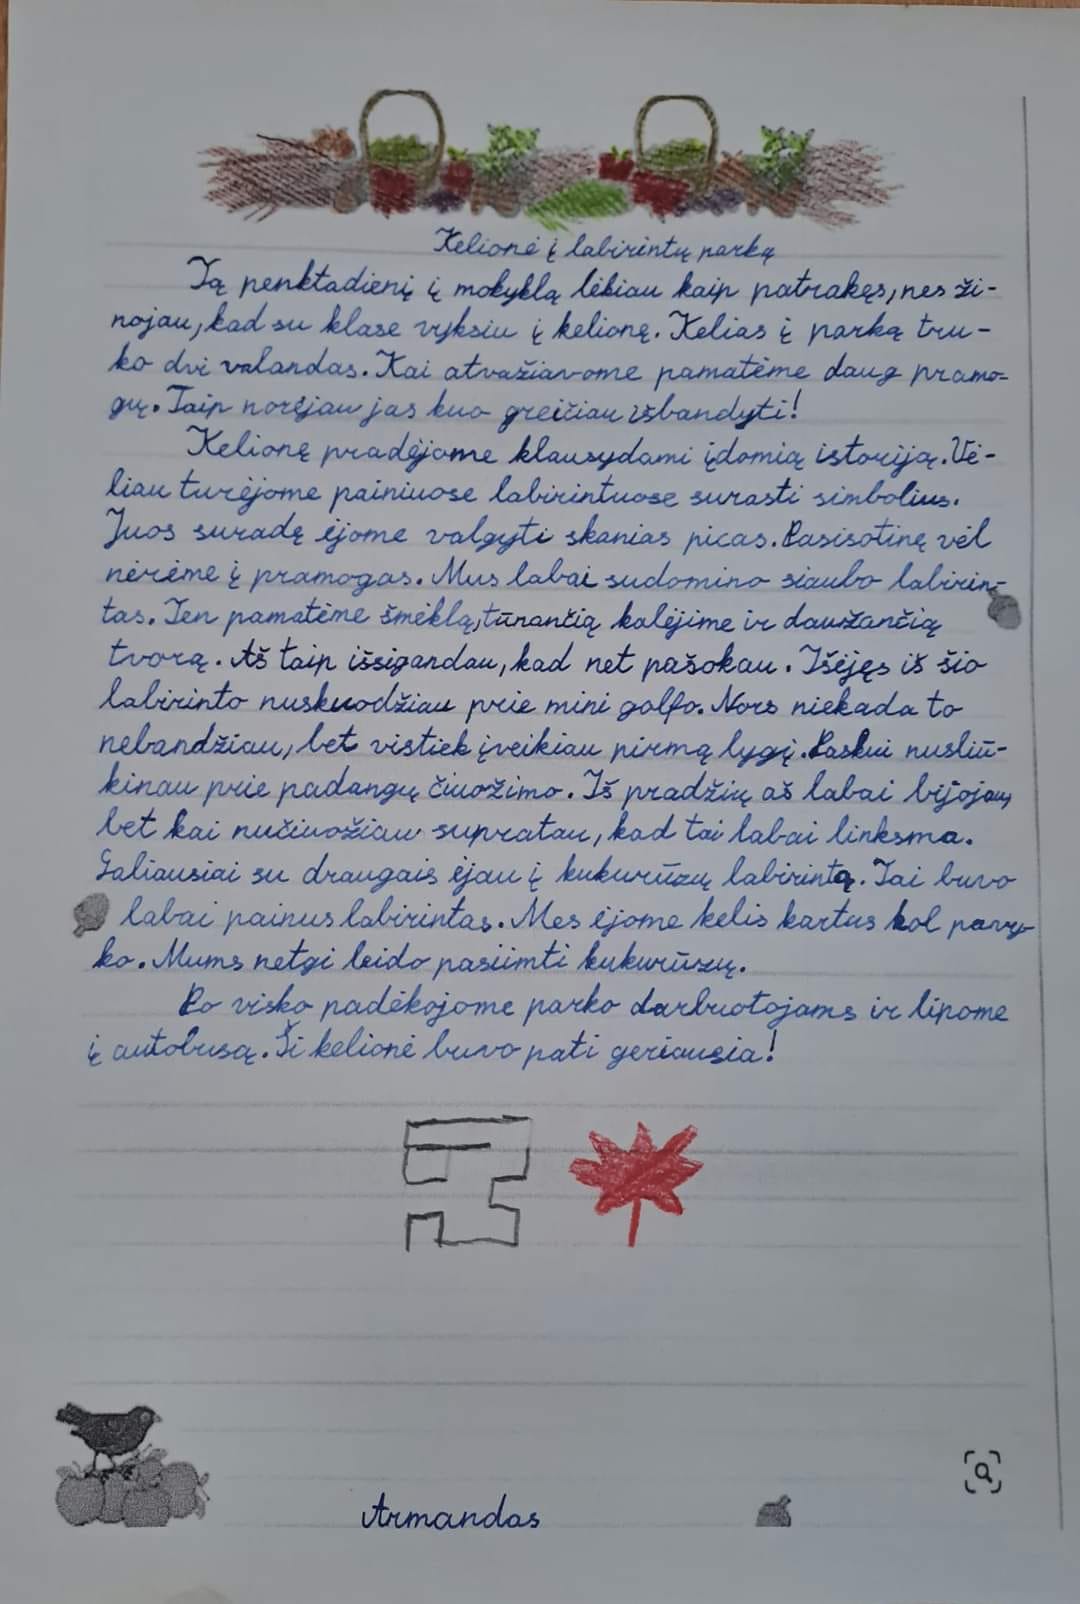 Kelionė į labirintų parką
Tą penktadienį į mokyklą lėkiau kaip patrakęs, nes ži-
nojau, kad su klase vyksiu į kelionę. Kelias į parką tru-
ko dvi valandas. Kai atvažiavome pamatėme daug pramo-
gų. Taip norėjau jas kuo greičiau išbandyti!
Kelionę pradėjome klausydami įdomią istoriją. Vė-
liau turėjome painiuose labirintuose surasti simbolius.
Juos suradę ėjome valgyti skanias picas. Pasisotinę vėl
nėrėme į pramogas. Mus labai sudomino siaubo labirin-
tas. Ten pamatėme šmėklą, tūnančią kalėjime ir daužančią
tvorą. Aš taip išsigandau, kad net pašokau. Išėjęs iš šio
labirinto nuskuodžiau prie mini golfo. Nors niekada to
nebandžiau, bet vistiek įveikiau pirmą lygį. Paskui nusliū-
kinau prie padangų čiuožimo. Iš pradžių aš labai bijojau,
bet kai nučiuožiau supratau, kad tai labai linksma.
Galiausiai su draugais ėjau į kukurūzų labirintą. Tai buvo
labai painus labirintas. Mes ėjome kelis kartus kol pavy-
ko. Mums netgi leido pasiimti kukurūzų.
Po visko padėkojome parko darbuotojams ir lipome
į autobusą. Ši kelionė buvo pati geriausia!
Armandas